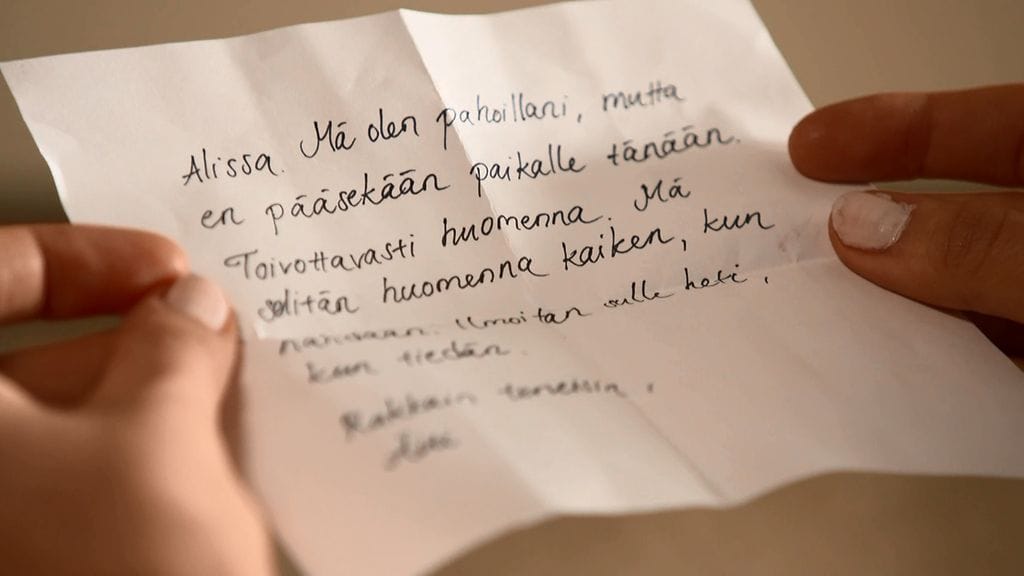 Alissa. Mä olen pahoillani, mutta
en pääsekään paikalle tänään.
Toivottavasti huomenna. Mä
selitän huomenna kaiken, kun
nähdään. Ilmoitan sulle heti,
kun tiedän.
Rakkain terveisin,